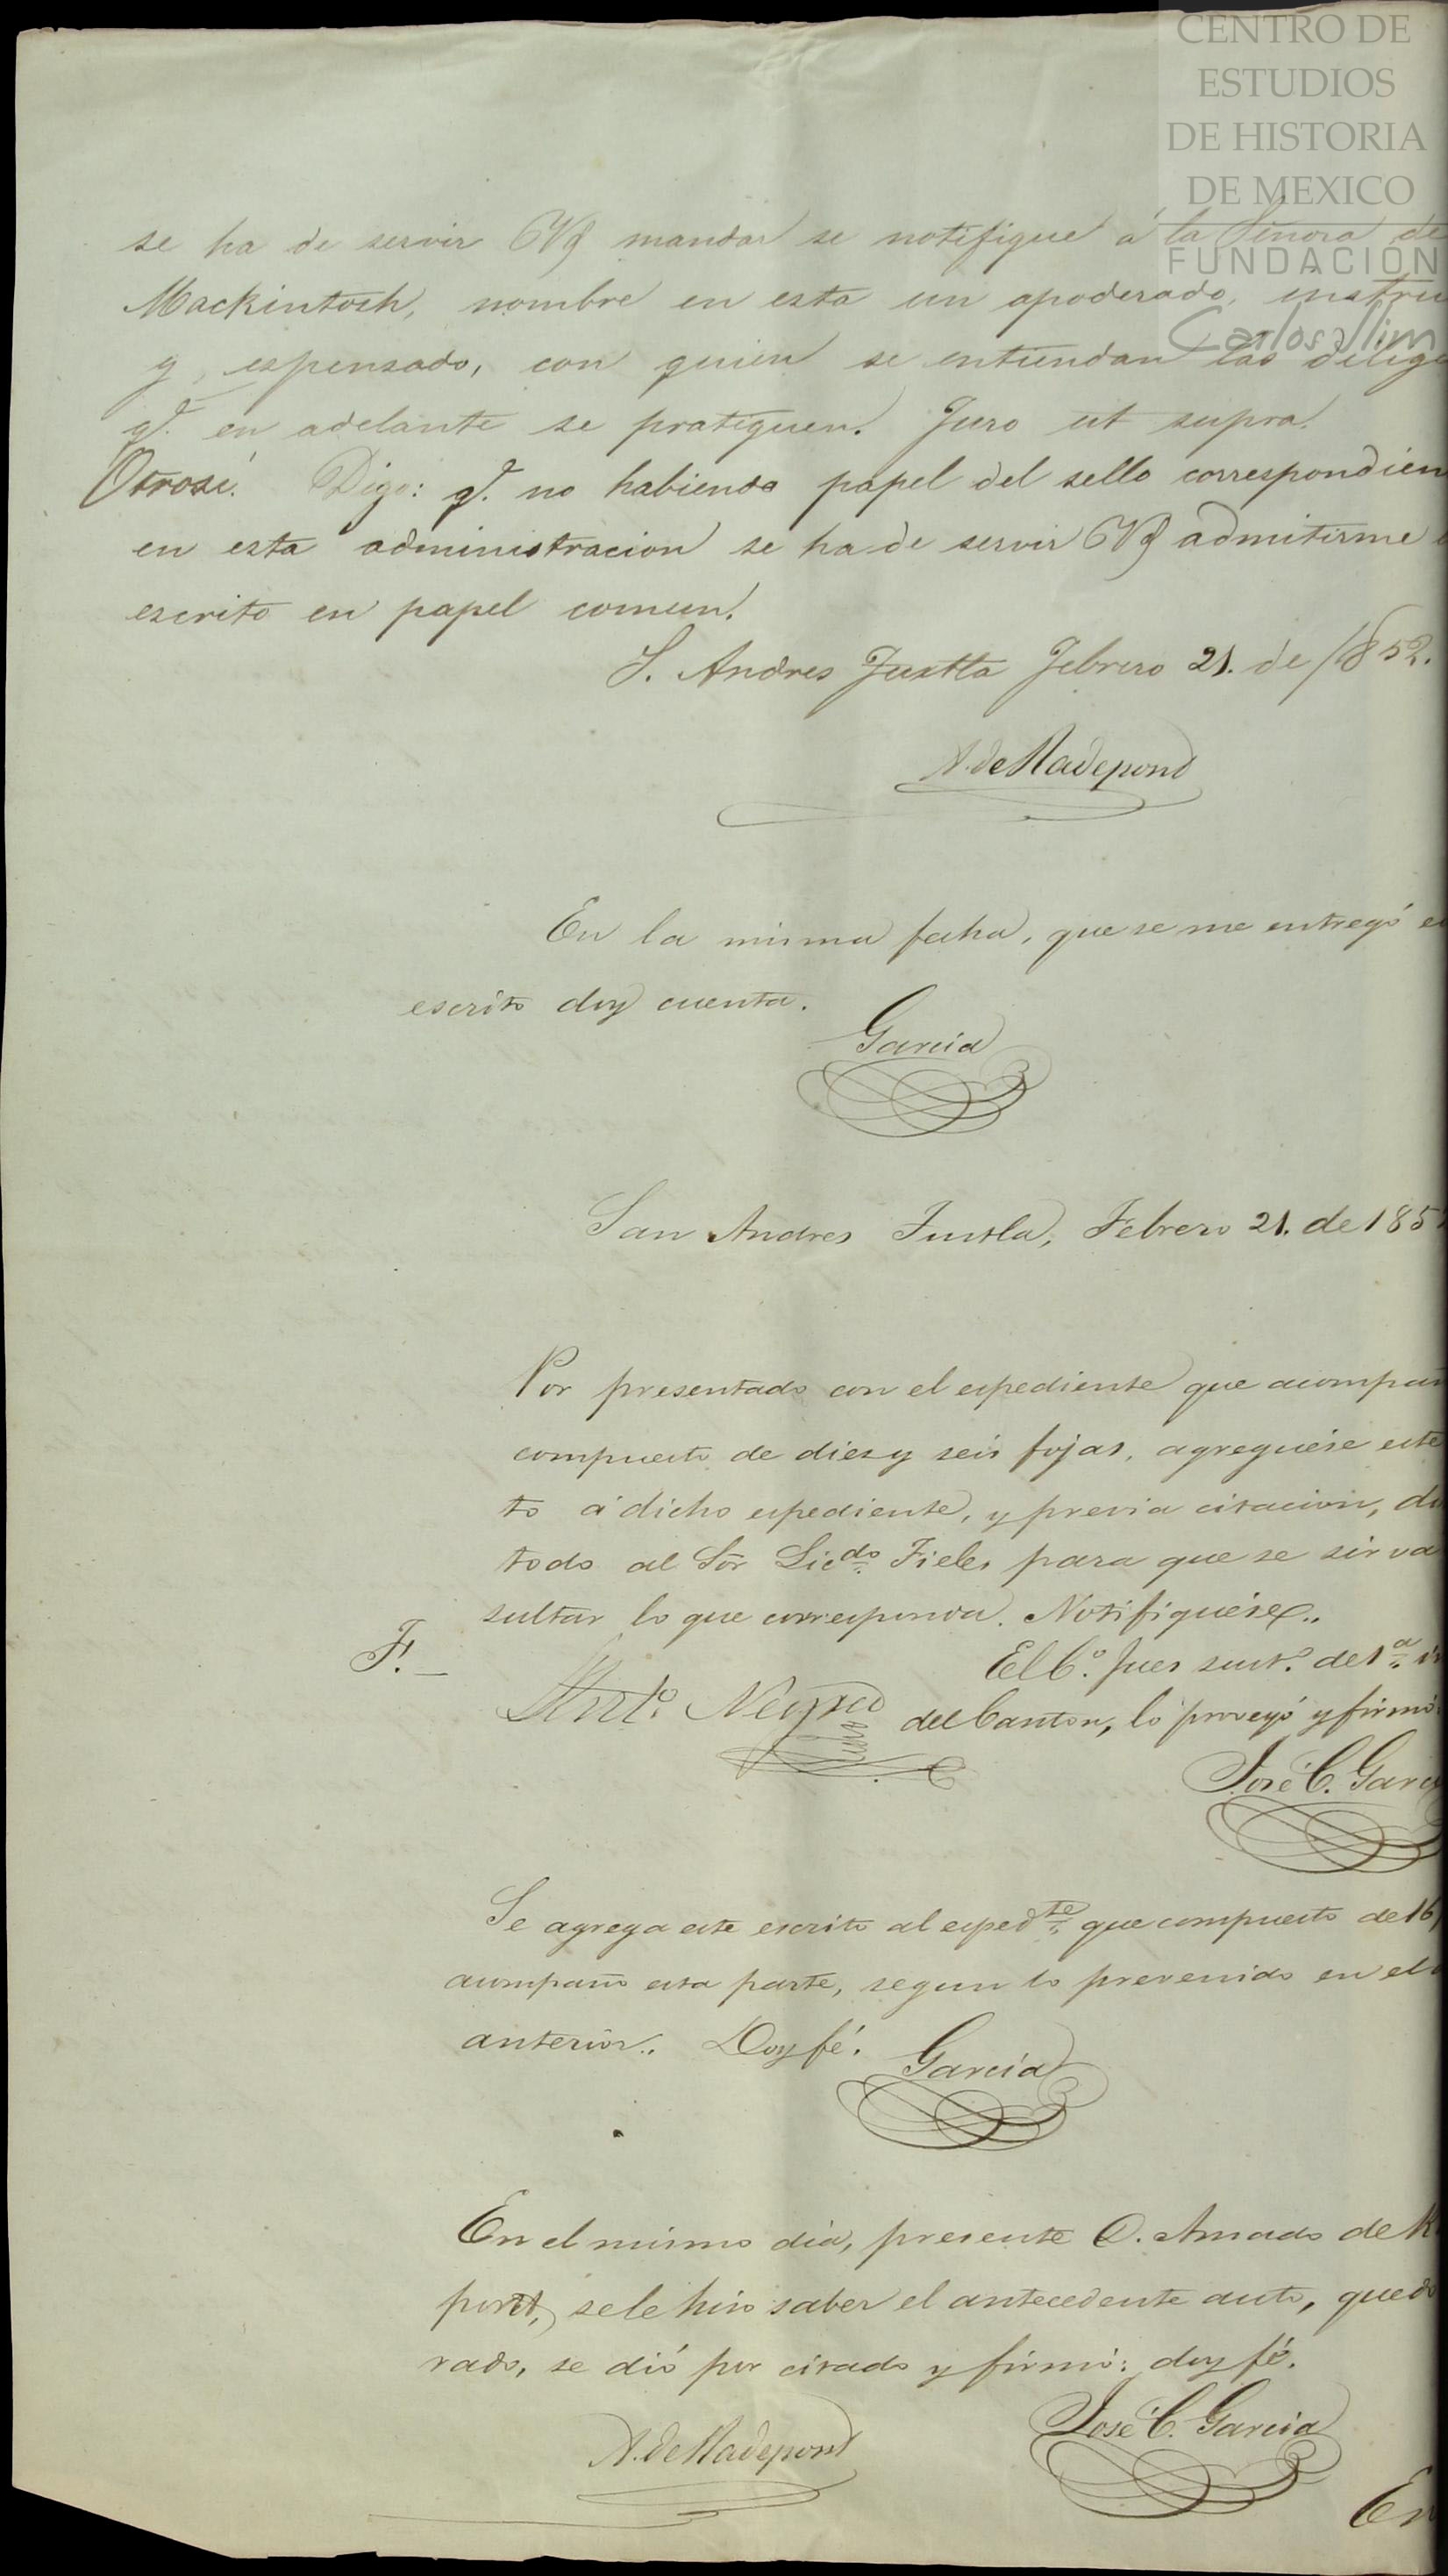 CENTRO DE
ESTUDIOS
DE HISTORIA
DE MEXICO
FUNDACIÓN
Carlos Slim
se ha de servir VS mandar se notifique á la Señora de
Mackintosh, nombre en esta un apoderado, instru
y espensado, con quien se entiendan las dilige
q.e en adelante se pratiquen. Juro ut supra.
Otrosi. Digo: q.e no habiendo papel del sello correspondien
en esta administracion se ha de servir VS admitirme e
escrito en papel comun.
S. Andres Tuxtla Febrero 21. de 1852.
A. de Radepond
En la misma fecha, que se me entregó el
escrito doy cuenta.
Garcia
San Andres Tuxtla, Febrero 21. de 185
Por presentado con el espediente que acompañ
compuesto de diez y seis fojas, agreguése este
to á dicho espediente, y previa citacion, d
todo al Sõr Licdo. Fieles para que se sirva
sultar lo que corresponda. Notifiquése..
F. El C.o Juez sust.o de 1.a in
Anto. Negrete del Canton, lo proveyó y firmó
José C. Garci
Se agrega este escrito al espedte. que compuesto de 16
acompaño esta parte, segun lo prevenido en el
anterior.. Doy fé.
Garcia
En el mismo dia, presente D. Amado de R
pont, se le hiso saber el antecedente auto, quedo
rado, se dió por citado y firmó: doy fé.
A. de Radepont
José C. Garcia
En